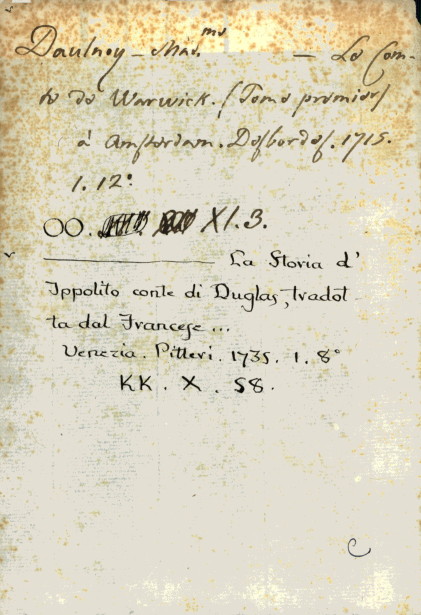 Daulnoy - Mad.me — Le Com-
te de Warwick. (Tome premier)
à Amsterdam. Desbordes. 1715.
1. 12º
OO. XI. 3.
La Storia d'
Ippolito conte di Duglas, tradot-
ta dal Francese ...
Venezia. Pitteri. 1735. 1. 8º
KK. X. 58.
C